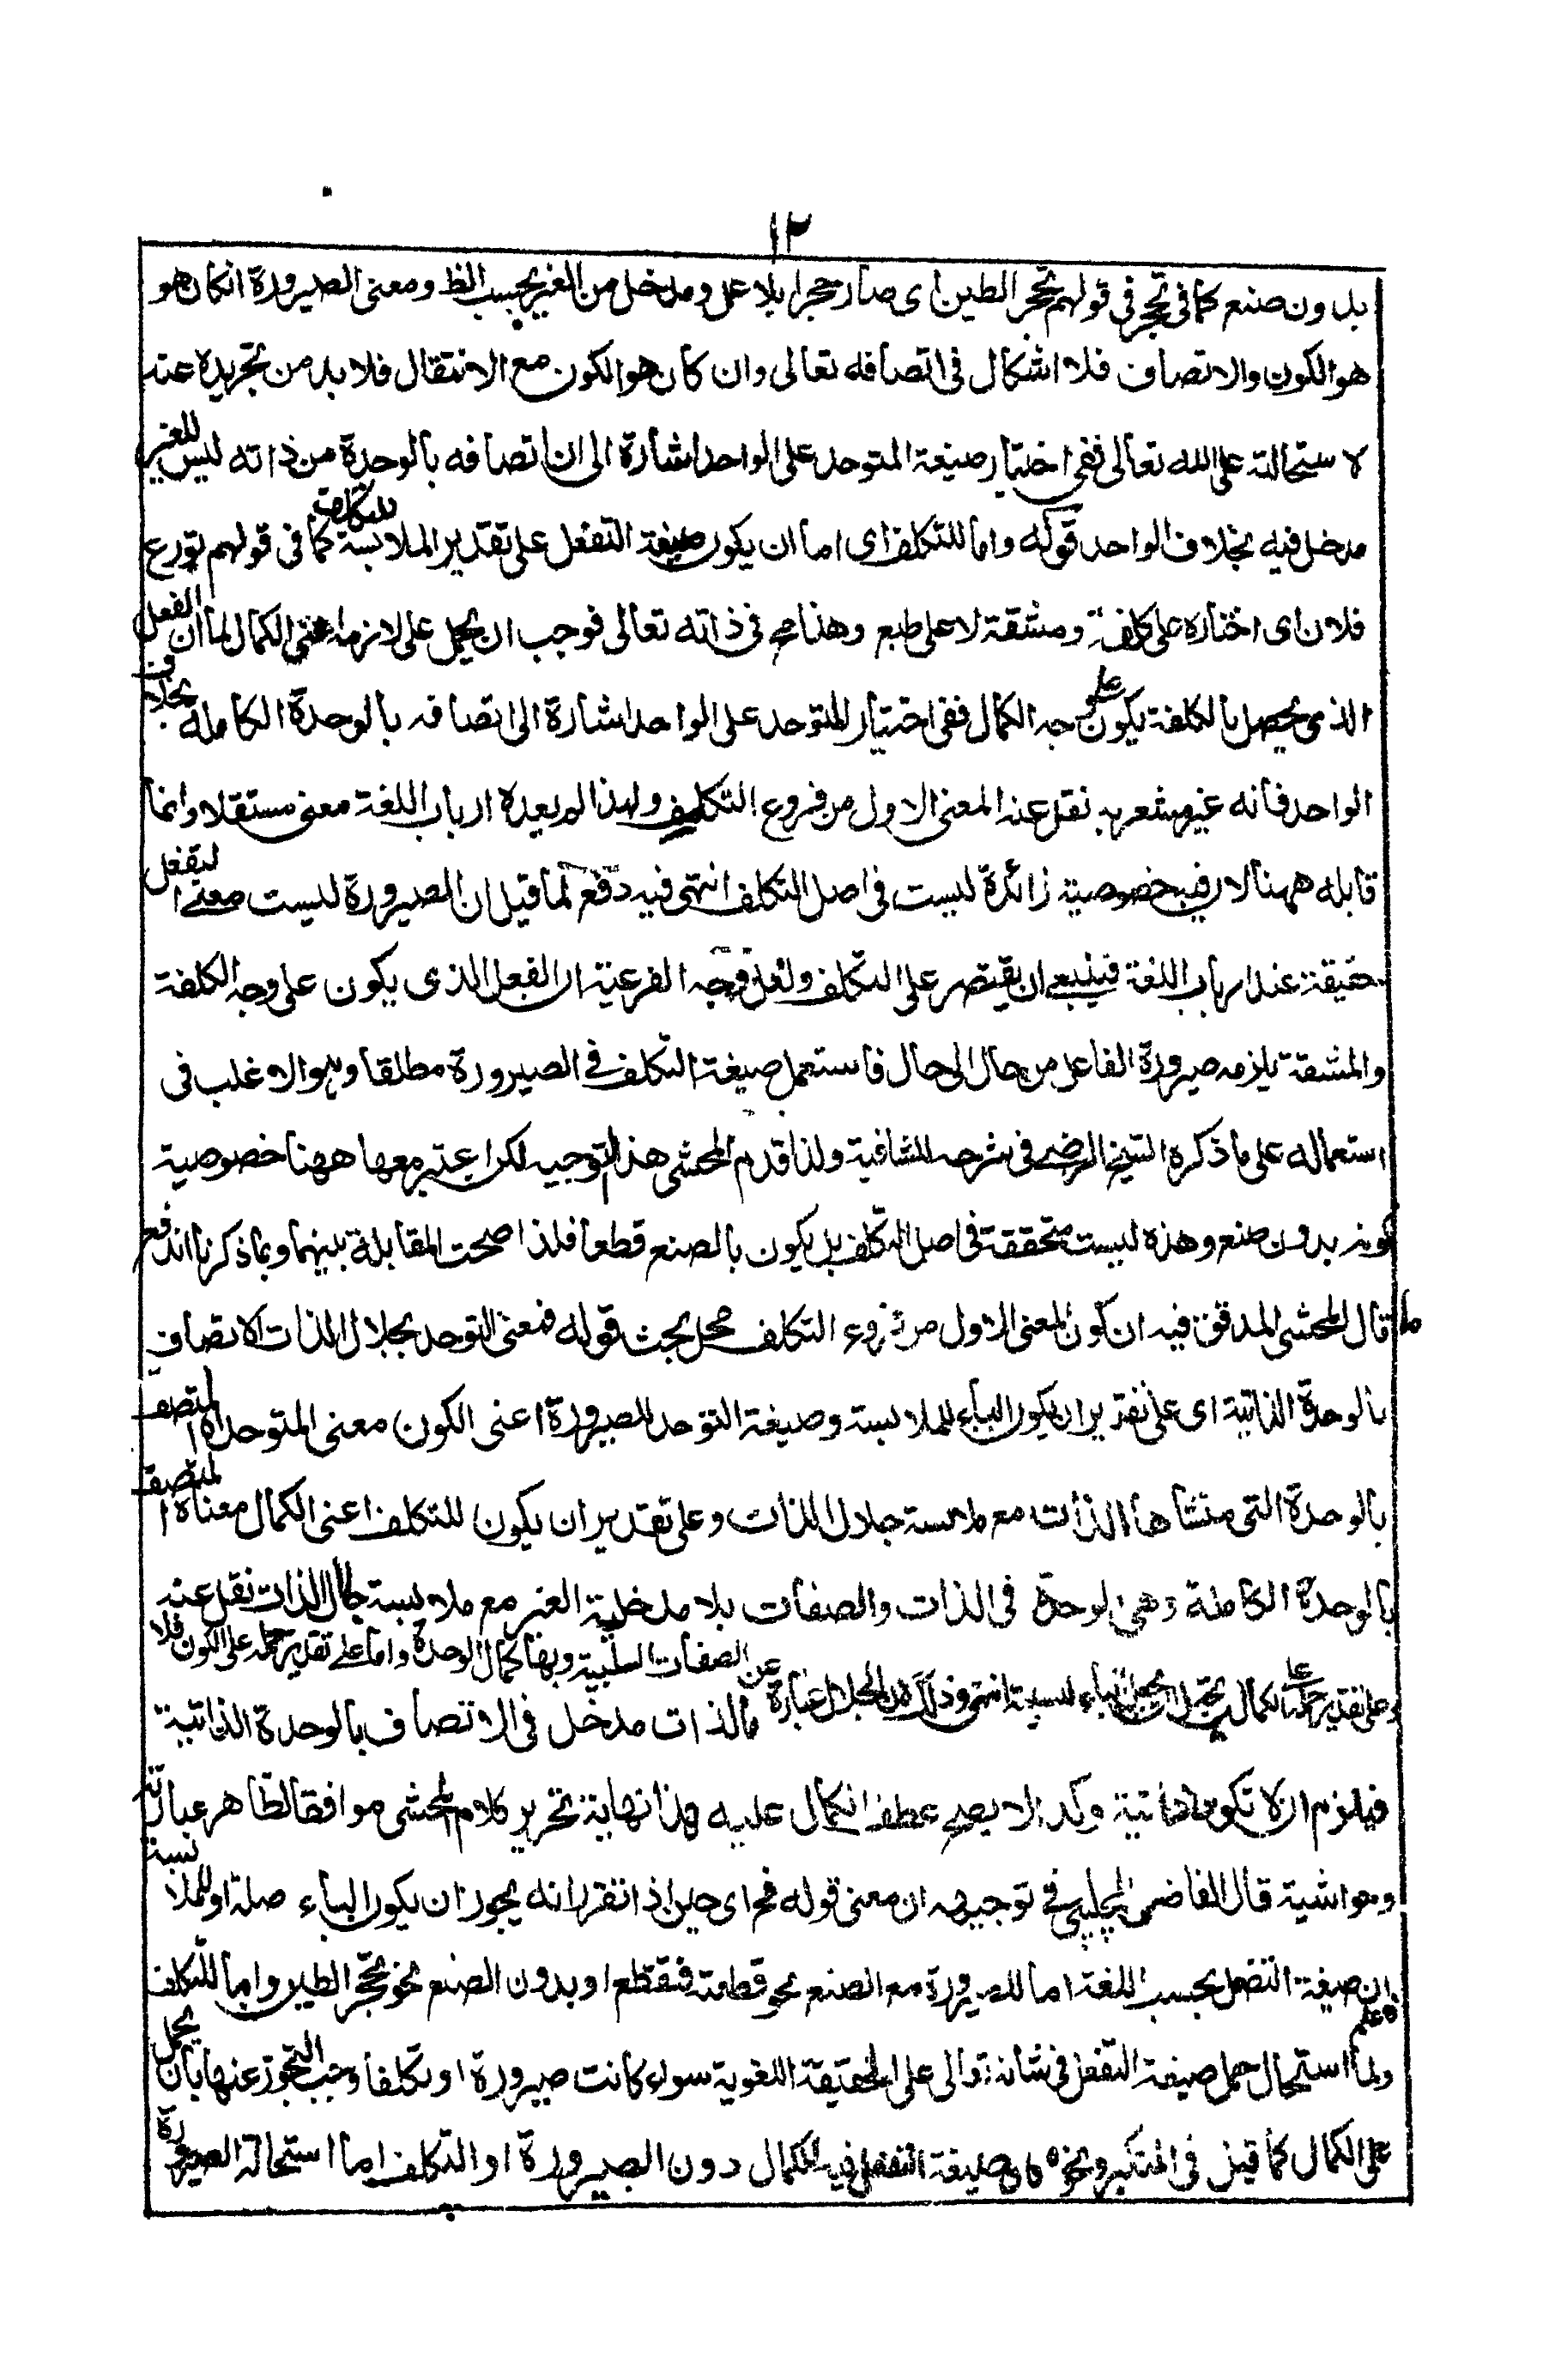 ١٢
بدون صنع كما فى تحجر فى قولهم تحجر الطين اى صار حجرا بلا عمل ومدخل من الغير بحسب الظ ومعنى الصيرورة انكان هو
هو الكون والاتصاف فلا اشكال فى اتصافه تعالى وان كان هو الكون مع الانتقال فلا بد من تجريده عنه
لاستحالته على الله تعالى ففى اختيار صيغة المتوحد على الواحد اشارة الى ان اتصافه بالوحدة من ذاته ليس للغير
مدخل فيه بخلاف الواحد قوله واما للتكلف اى اما ان يكون صيغة التفعل على تقدير الملابسة للتكلف كما فى قولهم تورع
فلان اى اختاره على كلفة ومشقة لا على طبع وهذا مح فى ذاته تعالى فوجب ان يحمل على لازمه اعنى الكمال لما ان الفعل
الذى يحصل بالكلفة يكون على وجه الكمال ففى اختيار المتوحد على الواحد اشارة الى اتصافه بالوحدة الكاملة بخلاف
الواحد فانه غير مشعر به نقل عنه المعنى الاول من فروع التكلف ولهذا لم يعده ارباب اللغة معنى مستقلا وانما
قابله ههنا لا رقبخصوصية زائدة ليست فى اصل التكلف انتهى فيه دفع لما قيل ان الصيرورة ليست معنى التفعل
حقيقة عند ارباب اللغة فينبغى ان يقتصر على التكلف ولعل وجه الفرعية ان الفعل الذى يكون على وجه الكلفة
والمشقة يلزمه صيرورة الفاعل من حال الى حال فاستعمل صيغة التكلف فى الصيرورة مطلقا وهو الاغلب فى
استعماله على ما ذكره الشيخ الرضى فى شرحه للشافية ولذا قدم المحشى هذا التوجيه لكن اعتبر معها ههنا خصوصية
كونه بدون صنع وهذه ليست متحققة فى اصل التكلف بل يكون بالصنع قطعا فلذا صحت المقابلة بينهما وبما ذكرنا اندفع
ما قال المحشى المدقق فيه ان كون المعنى الاول من فروع التكلف محل بحث قوله فمعنى التوحد بجلال الذات الاتصاف
بالوحدة الذاتية اى على تقدير ان يكون الباء للملابسة وصيغة التوحد للصيرورة اعنى الكون معنى المتوحد اه المتصف
بالوحدة التى منشأها الذات مع ملابسة جلال الذات وعلى تقدير ان يكون للتكلف اعنى الكمال معناه المتصف
بالوحدة الكاملة وهى الوحدة فى الذات والصفات بلا مدخلية الغير مع ملابسة جلال الذات نقل عنه
وعلى تقدير حمله على الكمال يحتمل ان يجعل الباء للسببية انتهى وذلك لان الجلال عبارة عن الصفات السلبية وبها كمال الوحدة واما على تقدير حمله على الكون فلا
مالذات مدخل فى الاتصاف بالوحدة الذاتية
فيلزم ان لا تكون ذاتية وكذا لا يصح عطف الكمال عليه هذا نهاية تحرير كلام المحشى موافقا لظاهر عبارته
وحواشية قال الفاضل الچلپى فى توجيهه ان معنى قوله فح اى حين اذ تقرر انه يجوز ان يكون الباء صلة او للملابسة
ان صيغة التفعل بحسب اللغة اما للصيرورة مع الصنع نحو قطعته فتقطع او بدون الصنع نحو تحجر الطين واما للتكلف
ولما استحال حمل صيغة التفعل فى شانه تعالى على الحقيقة اللغوية سواء كانت صيرورة او تكلفا وجب التجوز عنها بان يحمل
على الكمال كما قيل فى المتكبر ونحوه كان صيغة التفعل فيه للكمال دون الصيرورة او التكلف اما استحالة الصيرورة